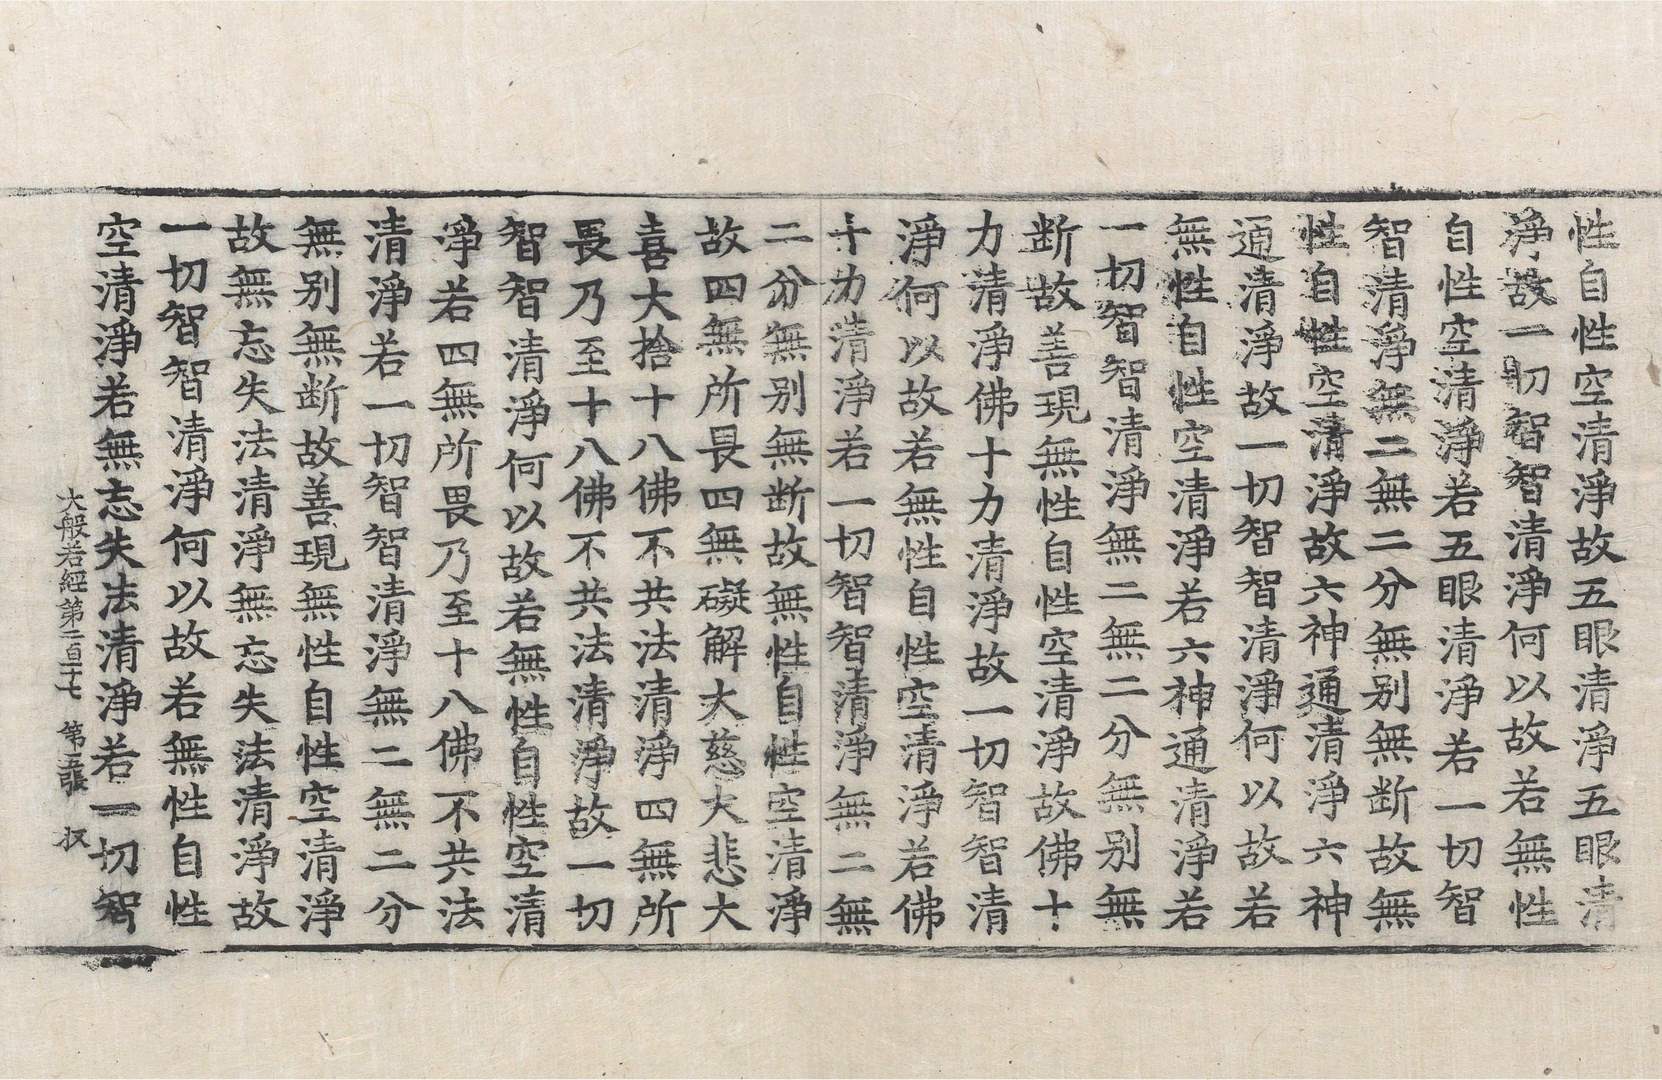 性自性空清淨故五眼清淨五眼清
淨故一切智智清淨何以故若無性
自性空清淨若五眼清淨若一切智
智清淨無二無二分無别無断故無
性自性空清淨故六神通清淨六神
通清淨故一切智智清淨何以故若
無性自性空清淨若六神通清淨若
一切智智清淨無二無二分無别無
断故善現無性自性空清淨故佛十
力清淨佛十力清淨故一切智智清
淨何以故若無性自性空清淨若佛
十力清淨若一切智智清淨無二無
二分無别無断故無性自性空清淨
故四無所畏四無礙解大慈大悲大
喜大捨十八佛不共法清淨四無所
畏乃至十八佛不共法清淨故一切
智智清淨何以故若無性自性空清
淨若四無所畏乃至十八佛不共法
清淨若一切智智清淨無二無二分
無别無断故善現無性自性空清淨
故無忘失法清淨無忘失法清淨故
一切智智清淨何以故若無性自性
空清淨若無忘失法清淨若一切智
大般若經第二百二十七 第五張